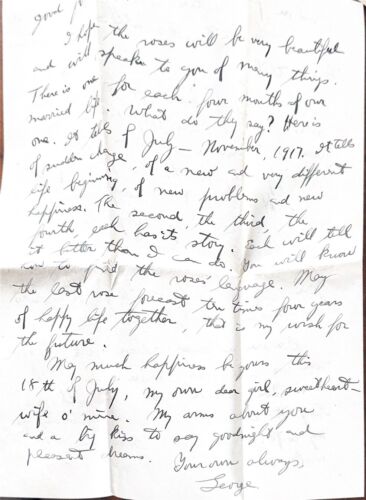 good f
I hope the roses will be very beautiful
and will speake to you of many things.
There is one for each four months of our
married life. What do they say? Here is
one. It tells of July - November, 1917. It tells
of sudden change, of a new and very different
life beginning, of new problems and new
happiness. The second, the third, the
fourth, each has its story. Each will tell
it better than I can do. You will know
how to the roses' language. May
the last rose forecast ten times four years
of happy life together, this is my wish for
the future.
May much happiness be yours this
18th of July, my own dear girl, sweetheart-
wife o' mine. My arms about you
and a big kiss to say goodnight and
pleasant dreams. Your own always,
George